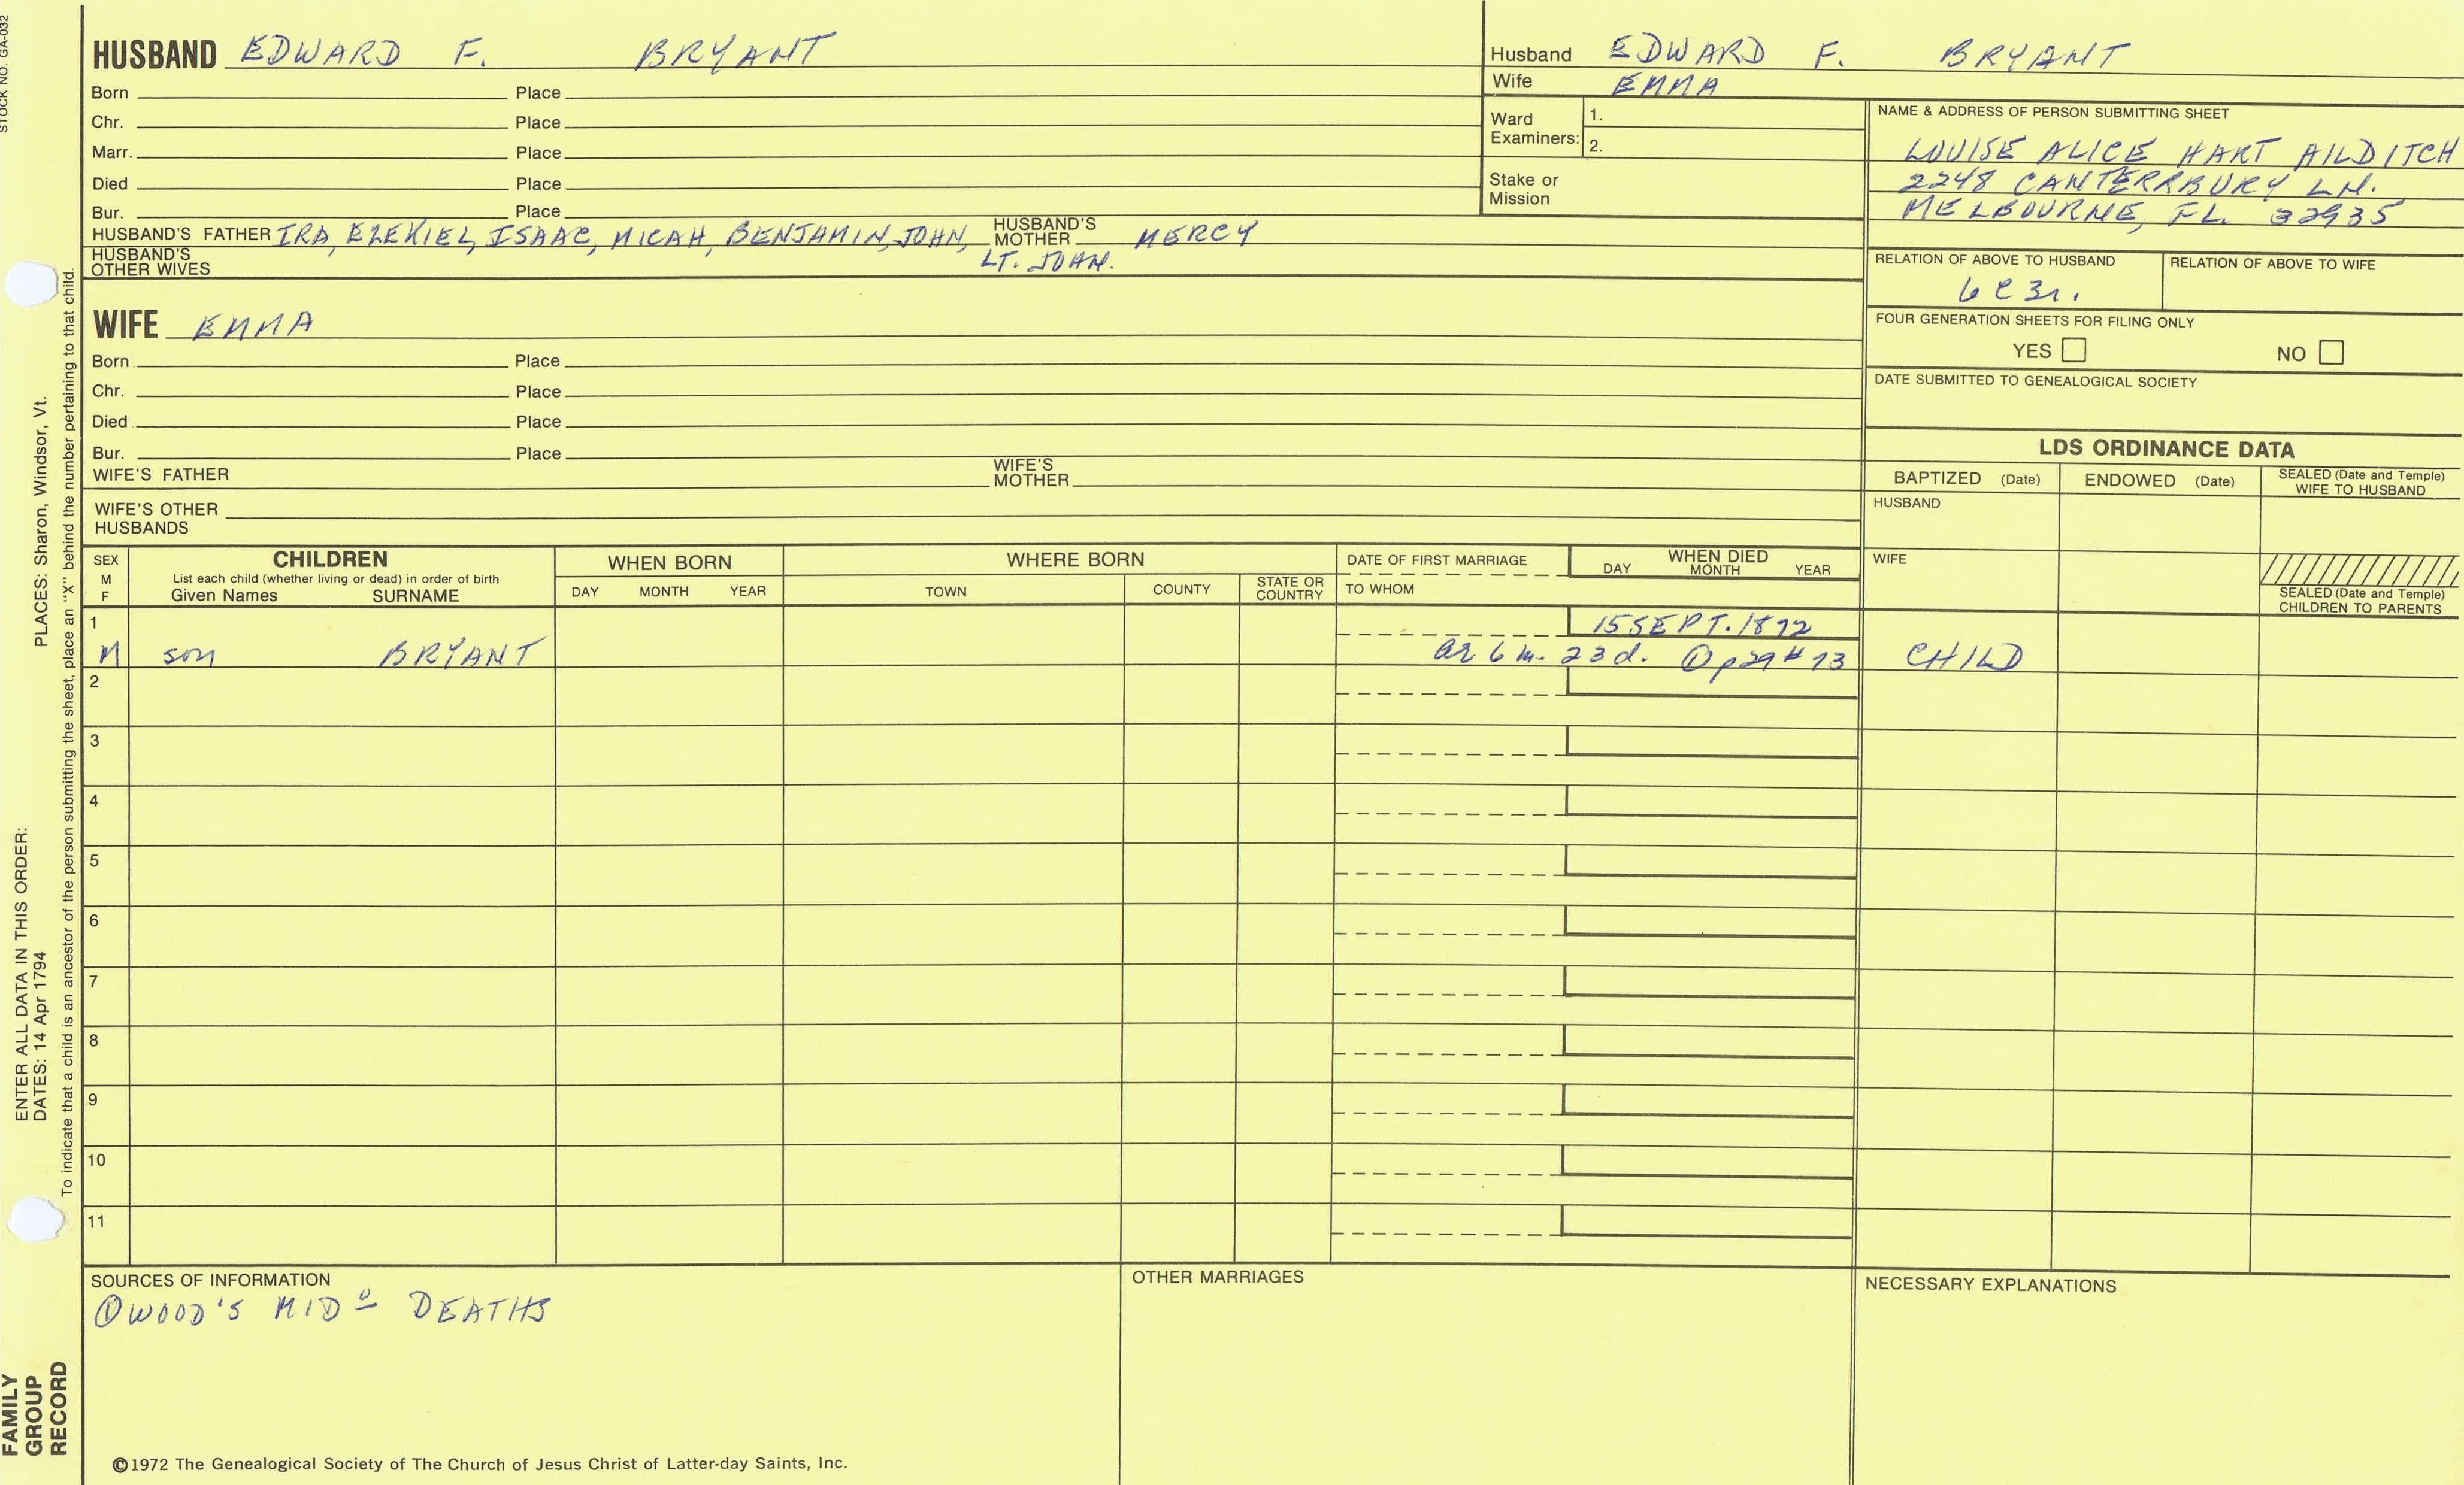 STOCK NO. GA-032
HUSBAND EDWARD F. BRYANT
Born Place
Chr. Place
Marr. Place
Died Place
Bur. Place
HUSBAND'S FATHER IRA, EZEKIEL, ISAAC, MICAH, BENJAMIN, JOHN, LT. JOHN.
HUSBAND'S MOTHER MERCY
HUSBAND'S OTHER WIVES
WIFE EMMA
Born Place
Chr. Place
Died Place
Bur. Place
WIFE'S FATHER
WIFE'S MOTHER
WIFE'S OTHER HUSBANDS
Husband EDWARD F. BRYANT
Wife EMMA
Ward Examiners: 1.
2.
Stake or Mission
NAME & ADDRESS OF PERSON SUBMITTING SHEET
LOUISE ALICE HART AILDITCH
2248 CANTERRBURY LN.
MELBOURNE, FL. 32935
RELATION OF ABOVE TO HUSBAND
6C3r.
RELATION OF ABOVE TO WIFE
FOUR GENERATION SHEETS FOR FILING ONLY
YES NO
DATE SUBMITTED TO GENEALOGICAL SOCIETY
LDS ORDINANCE DATA
BAPTIZED (Date) ENDOWED (Date) SEALED (Date and Temple) WIFE TO HUSBAND
HUSBAND
WIFE
SEALED (Date and Temple) CHILDREN TO PARENTS
SEX M F
CHILDREN
List each child (whether living or dead) in order of birth
Given Names SURNAME
WHEN BORN
DAY MONTH YEAR
WHERE BORN
TOWN COUNTY STATE OR COUNTRY
DATE OF FIRST MARRIAGE
TO WHOM
WHEN DIED
DAY MONTH YEAR
1 15 SEPT. 1872
M son BRYANT ae 6 m. 23 d. ① p29 #13 CHILD
2
3
4
5
6
7
8
9
10
11
SOURCES OF INFORMATION
① WOOD'S MIDº DEATHS
OTHER MARRIAGES
NECESSARY EXPLANATIONS
©1972 The Genealogical Society of The Church of Jesus Christ of Latter-day Saints, Inc.
ENTER ALL DATA IN THIS ORDER:
DATES: 14 Apr 1794
PLACES: Sharon, Windsor, Vt.
To indicate that a child is an ancestor of the person submitting the sheet, place an "X" behind the number pertaining to that child.
FAMILY
GROUP
RECORD